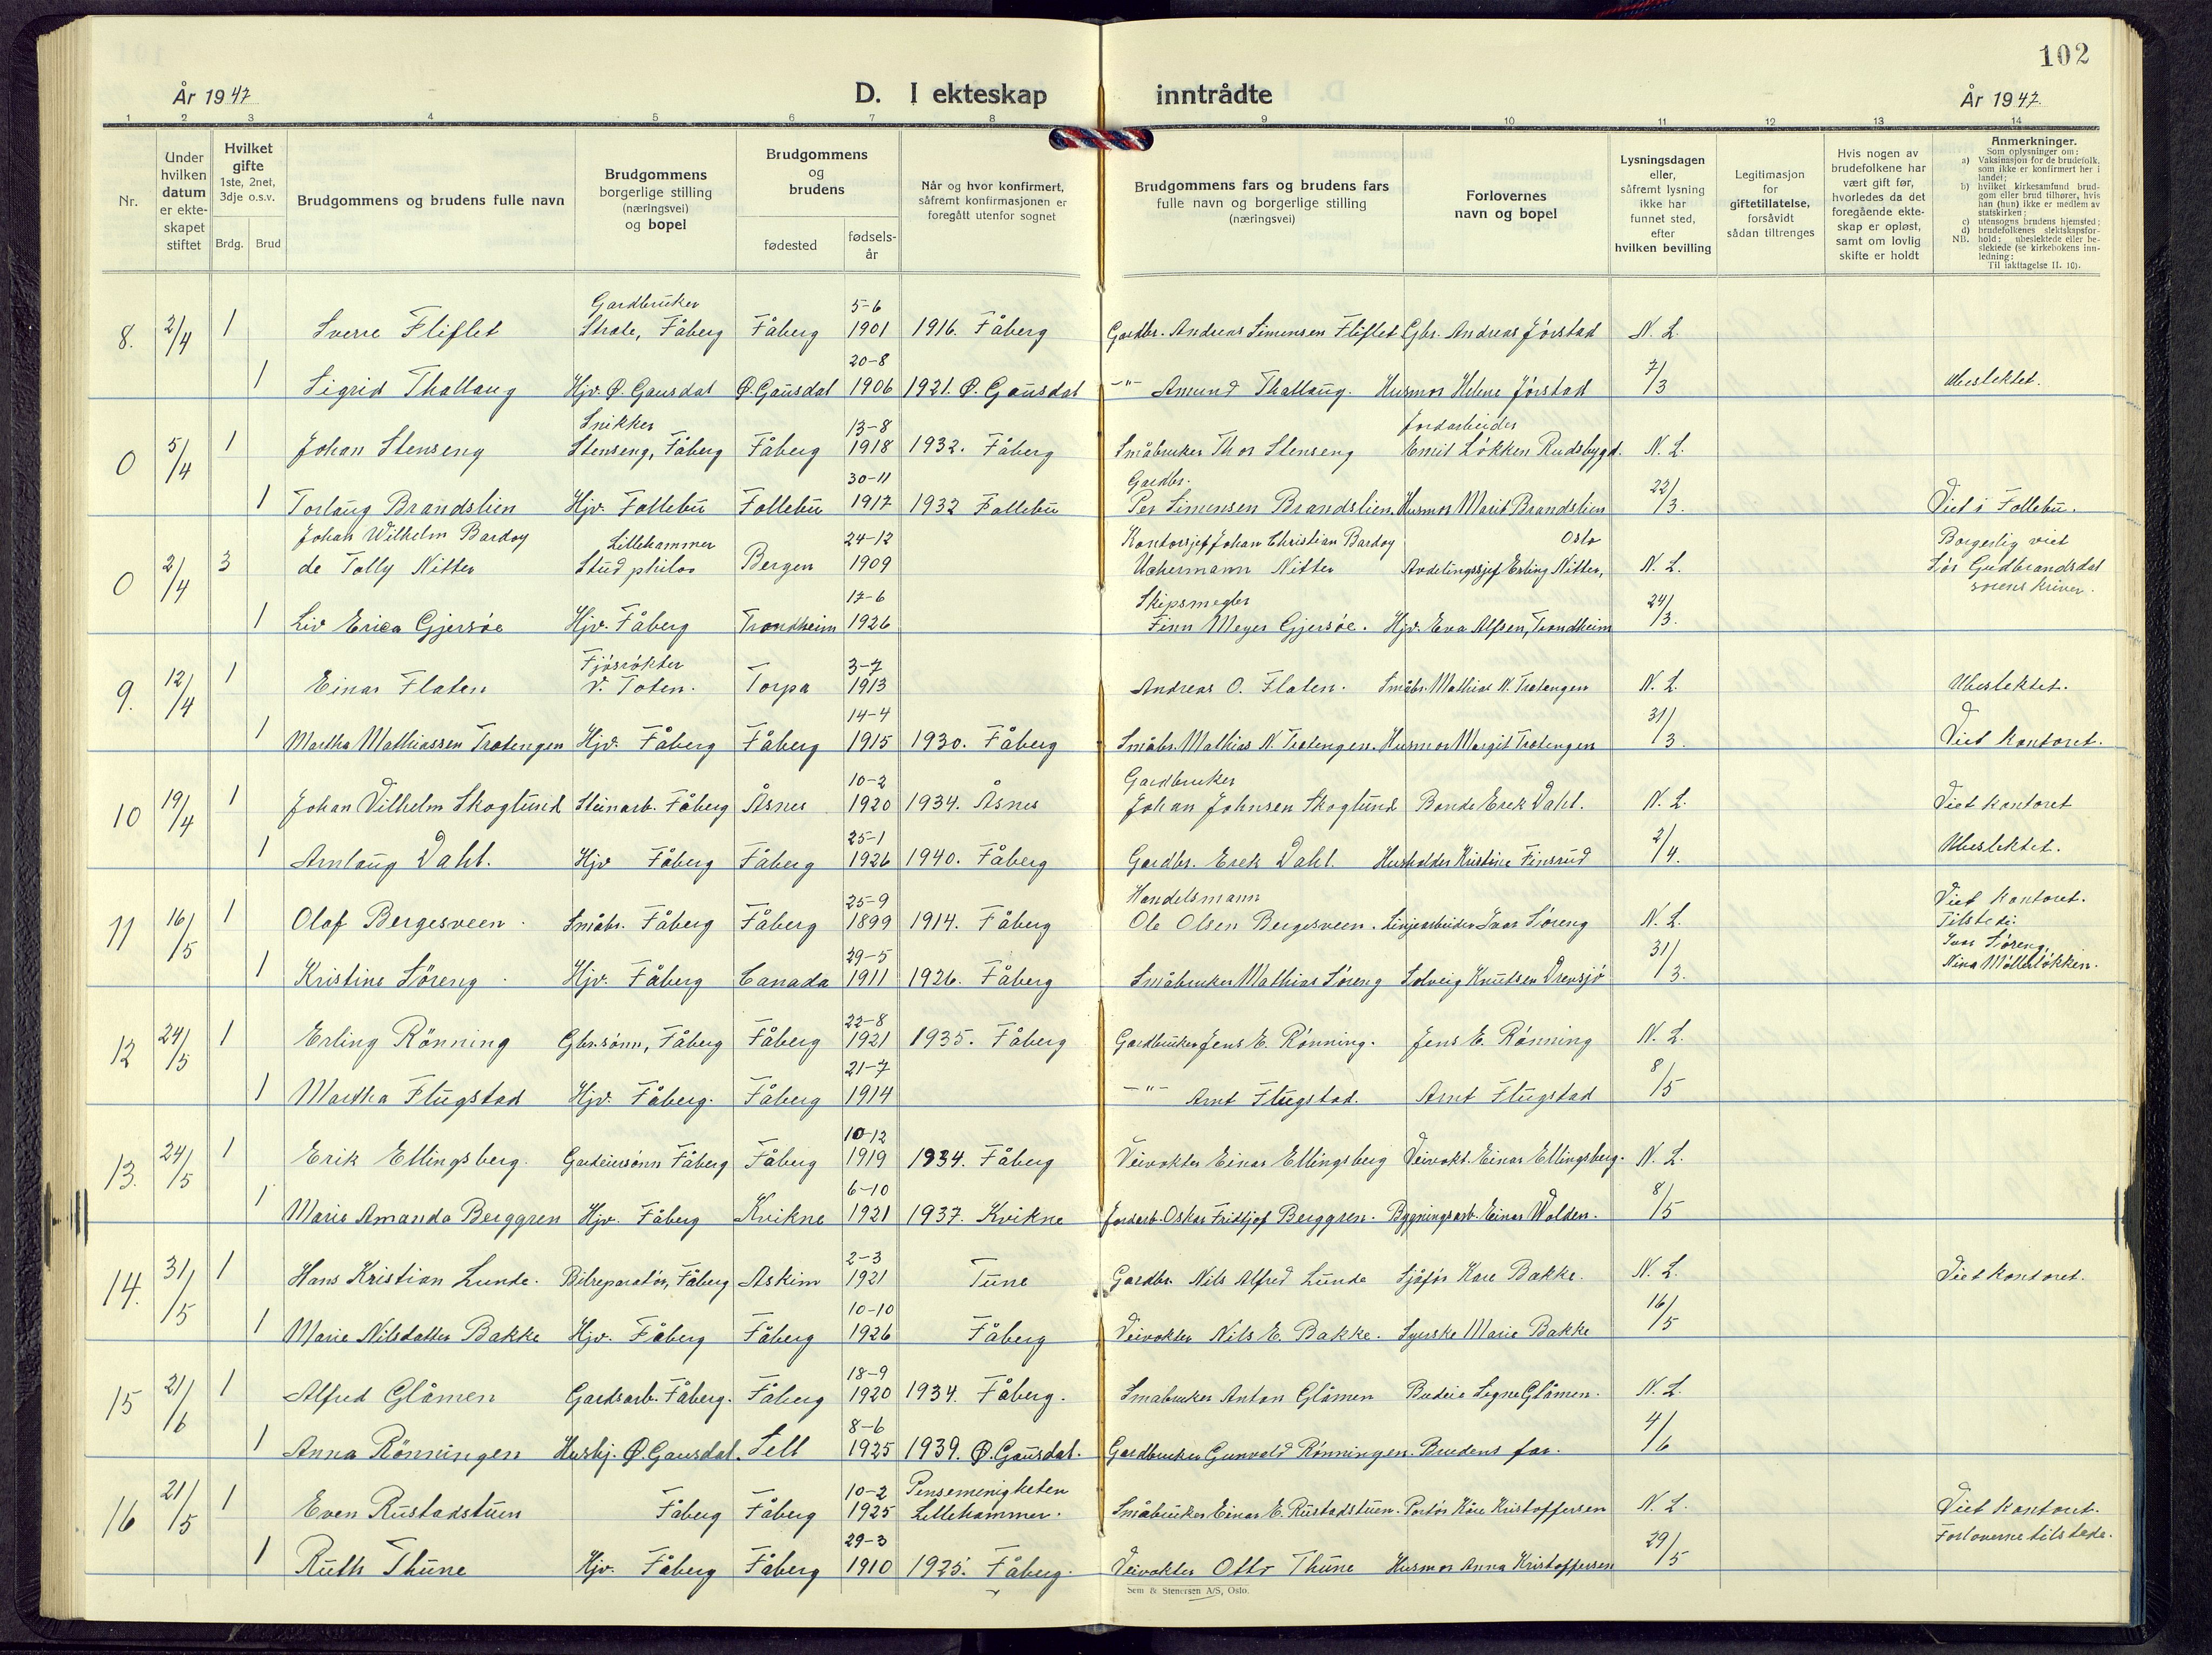 102
År 1947
D. I ekteskap inntrådte
År 1947.
1 2 3 4 5 6 7 8 9 10 11 12 13 14
Nr.
Under hvilken datum er ekte-skapet stiftet
Hvilket gifte 1ste, 2net, 3dje o.s.v.
Brdg. Brud
Brudgommens og brudens fulle navn
Brudgommens borgerlige stilling (næringsvei) og bopel
Brudgommens og brudens
fødested
fødsels-år
Når og hvor konfirmert, såfremt konfirmasjonen er foregått utenfor sognet
Brudgommens fars og brudens fars fulle navn og borgerlige stilling (næringsvei)
Forlovernes navn og bopel
Lysningsdagen eller, såfremt lysning ikke har funnet sted, efter hvilken bevilling
Legitimasjon for giftetillatelse, forsåvidt sådan tiltrenges
Hvis nogen av brudefolkene har vært gift før, hvorledes da det foregående ekte-skap er opløst, samt om lovlig skifte er holdt
Anmerkninger.
Som oplysninger om:
a) Vaksinasjon for de brudefolk, som ikke er konfirmert her i landet;
b) hvilket kirkesamfund brud-gom eller brud tilhører, hvis han (hun) ikke er medlem av statskirken;
c) utensogns brudens hjemsted;
d) brudefolkenes slektskapsfor-hold: ubeslektede eller be-slektede (se kirkebokens inn-ledning:
NB.
Til iakttagelse II. 10).
Gardbruker 5-6
8. 2/4 1 Sverre Fliflet Strale, Fåberg Fåberg 1901 1916. Fåberg Gardbr. Andreas Simensen Fliflet Gbr. Andreas Jørstad N. L.
20-8 7/3
1 Sigrid Thallaug Hjv. Ø. Gausdal Ø. Gausdal 1906 1921. Ø. Gausdal -"- Amund Thallaug. Husmor Helene Jørstad Ubeslektet.
Snikker 13-8 Jordarbeider
0 5/4 1 Johan Stenseng Stenseng, Fåberg Fåberg 1918 1932. Fåberg Småbruker Thor Stenseng Emil Løkken Rudsbygd. N. L.
30-11 Gardbr. 22/3.
1 Torlaug Brandslien Hjv. Follebu Follebu 1917 1932 Follebu Per Simensen Brandslien. Husmor Marit Brandslien Viet i Follebu.
Johan Wilhelm Bardoy Lillehammer 24-12 Kontorsjef Johan Christian Bardoy Oslo Borgerlig viet
0 2/4 3 de Tolly Nitter Stud philos Bergen 1909 Uchermann Nitter Avdelingssjef Erling Nitter, N. L. Sør Gudbrandsdal
sorenskriver.
17-6 Skipsmegler 24/3.
1 Liv Erica Gjersøe Hjv. Fåberg Trondheim 1926 Finn Meyer Gjersøe. Hjv. Eva Alfsen, Trondheim
Fjøsrøkter 3-7
9. 12/4 1 Einar Flaten V. Toten. Torpa 1913 Andreas O. Flaten. Småbr. Mathias N. Trotengen N. L. Ubeslektet.
14-4 31/3.
1 Martha Mathiassen Trotengen Hjv. Fåberg Fåberg 1915 1930. Fåberg Småbr. Mathias N. Trotengen. Husmor Margit Trotengen Viet kontoret.
10-2 Gardbruker
10 19/4 1 Johan Vilhelm Skoglund Steinarb. Fåberg Åsnes 1920 1934. Åsnes Johan Johnsen Skoglund Bonde Erek Dahl. N. L. Viet kontoret
25-1 2/4.
1 Arnlaug Dahl. Hjv Fåberg Fåberg 1926 1940. Fåberg Gardbr. Erek Dahl. Husholder Kristine Finsrud Ubeslektet.
25-9 Handelsmann Viet Kontoret.
11 16/5 1 Olaf Bergesveen. Småbr. Fåberg Fåberg 1899 1914. Fåberg Ole Olsen Bergesveen. Linjearbeider Ivar Søreng N. L. Tilstede:
29-5 31/3. Ivar Søreng,
1 Kristine Søreng Hjv. Fåberg Canada 1911 1926. Fåberg Småbruker Mathias Søreng Solveig Knutsen Drevsjø Nina Møllerløkken.
22-8
12 24/5 1 Erling Rönning Gbr.sønn, Fåberg Fåberg 1921 1935. Fåberg Gardbruker Jens E. Rønning. Jens E. Rønning N. L.
21-7 8/5
1 Martha Flugstad Hjv. Fåberg. Fåberg 1914 -"- Arnt Flugstad. Arnt Flugstad
10-12
13. 24/5 1 Erik Ellingsberg. Gardeiersønn Fåberg Fåberg 1919 1934. Fåberg Veivokter Einar Ellingsberg Veivokt. Einar Ellingsberg. N. L.
6-10 8/5
1 Marie Amanda Berggren Hjv. Fåberg Kvikne 1921 1937. Kvikne Jordarb. Oskar Fridtjof Berggren. Bygningsarb. Einar Wolden.
2-3
14. 31/5 1 Hans Kristian Lunde. Bilreparatør, Fåberg Askim 1921 Tune Gardbr. Nils Alfred Lunde Sjåfør Kåre Bakke. N. L. Viet kontoret.
10-10 16/5
1 Marie Nilsdatter Bakke Hjv. Fåberg Fåberg 1926 Fåberg Veivokter Nils E. Bakke. Syerske Marie Bakke
18-9
15 21/6 1 Alfred Glåmen Gardsarb. Fåberg. Fåberg 1920 1934. Fåberg. Småbruker Anton Glåmen Budeie Signe Glåmen. N. L.
8-6 4/6
1 Anna Rönningen Hushj. Ø. Gausdal. Sell 1925 1939. Ø. Gausdal. Gardbruker Gunvald Rønningen. Brudens far.
10-2 Pensemenigheten
16 21/5 1 Even Rustadstuen Fåberg Fåberg 1925 Lillehammer. Småbruker Einar E. Rustadstuen. Portør Kåre Kristoffersen N. L. Viet Kontoret.
29-3 29/5 Forloverne tilstede.
1 Ruth Thune Hjv. Fåberg Fåberg 1910 1925. Fåberg. Veivokter Otto Thune Husmor Anna Kristoffersen
Sem & Stenersen A/S, Oslo.